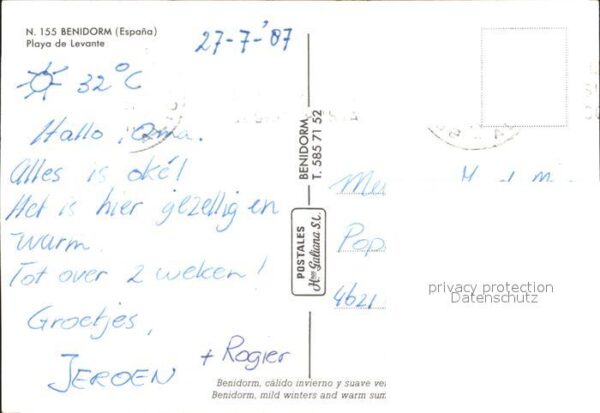 N. 155 BENIDORM (España)
Playa de Levante
27-7-'87
32°C
Hallo Oma.
Alles is oké!
Het is hier gezellig en
warm.
Tot over 2 weken!
Groetjes,
JEROEN
+ Rogier
BENIDORM
T. 585 71 52
POSTALES
Hnos Galiana S.L.
Pop
4621
privacy protection
Datenschutz
Benidorm, cálido invierno y suave ve
Benidorm, mild winters and warm sum